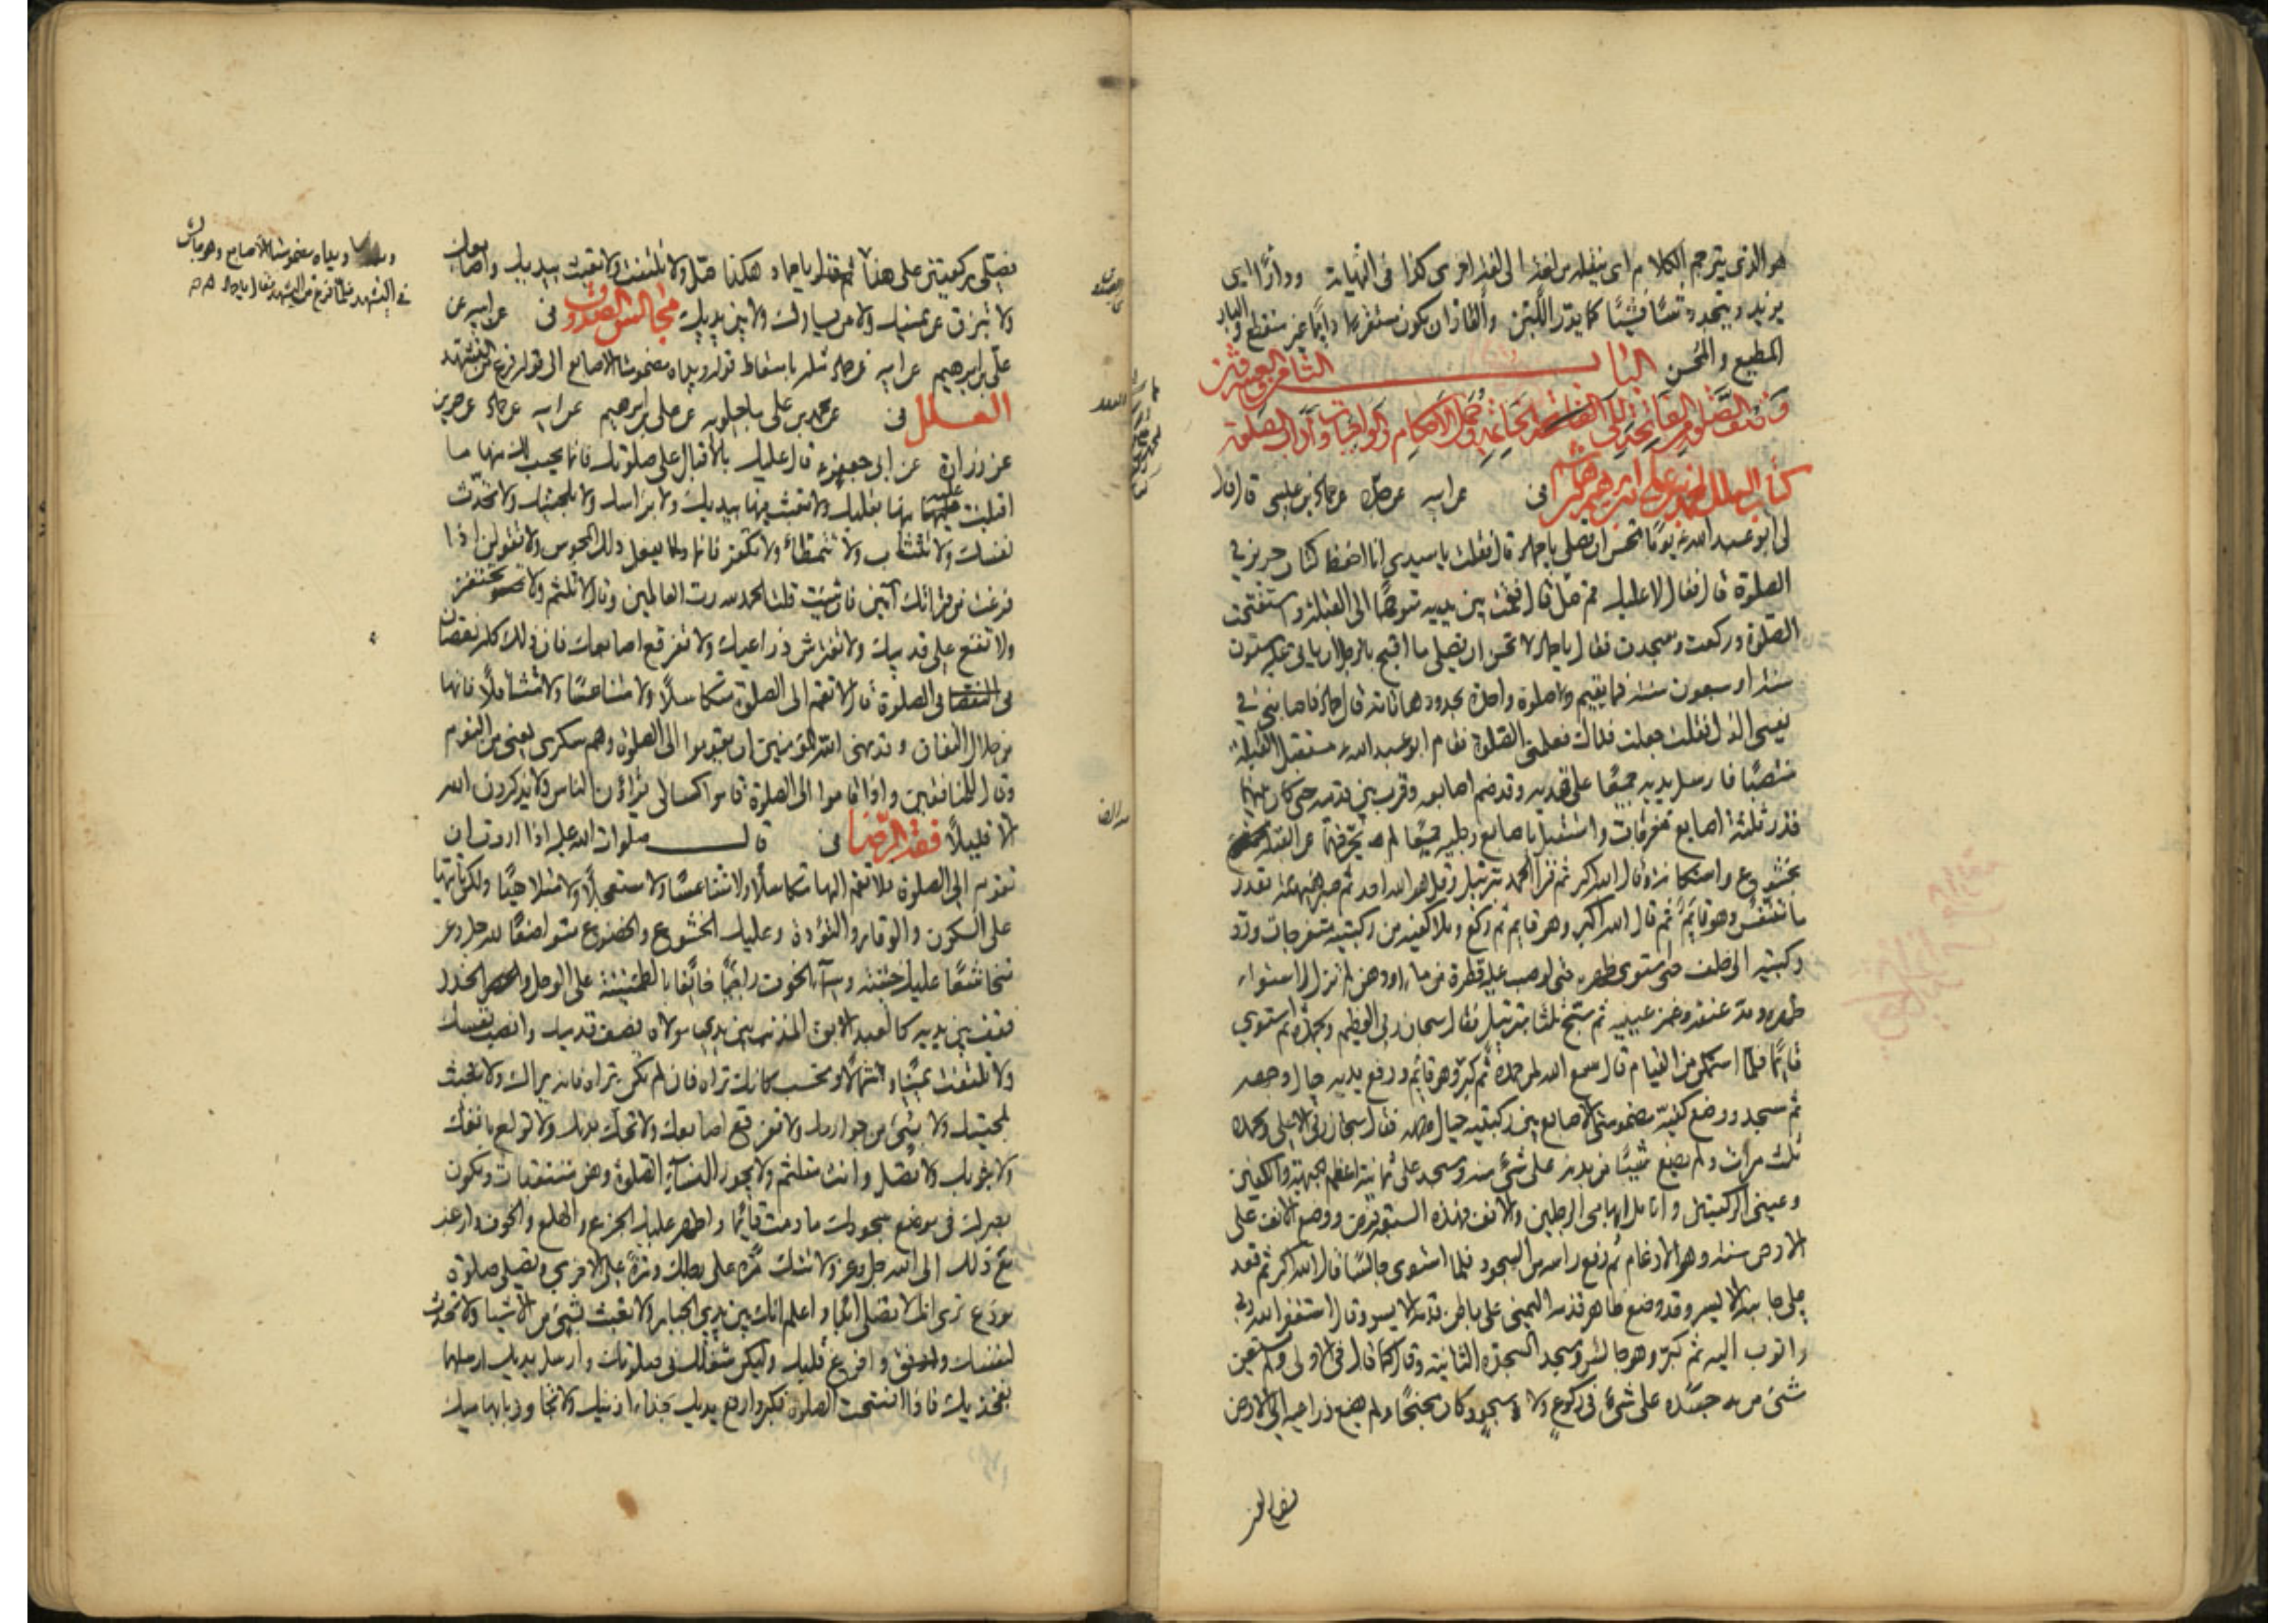 هو الذي يترجم الكلام اى ينقله من لغة الى لغة اخرى كذا في النهاية ودارًّا اى
يزيد ويتجدد شيئا فشيئا كما يدر اللبن والظاهر ان يكون مستقرها دايما غير منقطع والبار
المطيع والمحسن الباب الثامن والعشرون
وصف الصلوة من فاتحتها الى خاتمتها وجمل الاحكام والواجبات وآداب الصلوة
كتاب العلل لمحمد بن علي بن ابراهيم بن هاشم في عن ابيه عن جده عن حماد بن عيسى قال قال
لى ابو عبد الله ع يوما تحسن ان تصلي يا حماد قال فقلت يا سيدي انا احفظ كتاب حريز في
الصلوة قال فقال لا عليك قم صل قال فقمت بين يديه متوجها الى القبلة واستفتحت
الصلوة وركعت وسجدت فقال يا حماد لا تحسن ان تصلي ما اقبح بالرجل ان يأتي عليه ستون
سنة او سبعون سنة فما يقيم صلوة واحدة بحدودها تامة قال حماد فاصابني في
نفسي الذل فقلت جعلت فداك فعلمني الصلوة فقام ابو عبد الله ع مستقبل القبلة
منتصبا فارسل يديه جميعا على فخذيه وقد ضم اصابعه وقرب بين قدميه حتى كان بينهما
قدر ثلثة اصابع مفرجات واستقبل باصابع رجليه جميعا لم يحرفهما عن القبلة
بخشوع واستكانة وقال الله اكبر ثم قرأ الحمد بترتيل وقل هو الله احد ثم صبر هنيهة بقدر
ما تنفس وهو قايم ثم قال الله اكبر وهو قايم ثم ركع وملا كفيه من ركبتيه متفرجات ورد
ركبتيه الى خلف حتى استوى ظهره حتى لو صب عليه قطرة من ماء او دهن لم تزل لاستواء
ظهره ومد عنقه وغمض عينيه ثم سبح ثلثا بترتيل فقال سبحان ربي العظيم وبحمده ثم استوى
قائما فلما استمكن من القيام قال سمع الله لمن حمده ثم كبر وهو قائم ورفع يديه حيال وجهه
ثم سجد ووضع كفيه مضمومتى الاصابع بين ركبتيه حيال وجهه فقال سبحان ربي الاعلى وبحمده
ثلث مرات ولم يضع شيئا من بدنه على شيء منه وسجد على ثمانية اعظم الجبهة والكفين
وعيني الركبتين وانامل ابهامي الرجلين والانف فهذه السبعة فرض ووضع الانف على
الارض سنة وهو الارغام ثم رفع راسه من السجود فلما استوى جالسا قال الله اكبر ثم قعد
على جانبه الايسر وقد وضع ظاهر قدمه اليمنى على باطن قدمه الايسر وقال استغفر الله ربي
واتوب اليه ثم كبر وهو جالس وسجد السجدة الثانية وقال كما قال في الاولى ولم يستعن
شيء من جسده على شيء في ركوع ولا سجود وكان مجنحا ولم يضع ذراعيه على الارض
فصلى ركعتين على هذا ثم قال يا حماد هكذا صل ولا تلتفت ولا تعبث بيديك واصابعك
ولا تبزق عن يمينك ولا عن يسارك ولا بين يديك مجالس الصدوق في عن ابيه عن
علي بن ابراهيم عن ابيه عن حماد مثله باسقاط قوله ويداه مضمومتا الاصابع الى قوله فرغ من التشهد
العلل في عن محمد بن علي ماجيلويه عن علي بن ابراهيم عن ابيه عن حماد عن حريز
عن زرارة عن ابي جعفر ع قال عليك بالاقبال على صلوتك فانما يحسب لك منها ما
اقبلت عليه منها بقلبك ولا تعبث فيها بيديك ولا براسك ولا بلحيتك ولا تحدث
نفسك ولا تتثاب ولا تتمطا ولا تكفر فانما يفعل ذلك المجوس ولا تقولن اذا
فرغت من قرائتك آمين فان شئت قلت الحمد لله رب العالمين وقال لا تلثم ولا تحتفز
ولا تقع على قدميك ولا تفترش ذراعيك ولا تفرقع اصابعك فان ذلك كله نقصان
في الصلوة قال لا تقم الى الصلوة متكاسلا ولا متناعسا ولا متثاقلا فانها
من خلال النفاق وقد نهى الله المؤمنين ان يقوموا الى الصلوة وهم سكرى يعني من النوم
وقال للمنافقين واذا قاموا الى الصلوة قاموا كسالى يراؤن الناس ولا يذكرون الله
الا قليلا فقه الرضا في قال صلوات الله عليه اذا اردت ان
تقوم الى الصلوة فلا تقم اليها متكاسلا ولا متناعسا ولا مستعجلا ولا متلاهيا ولكن تأتيها
على السكون والوقار والتؤدة وعليك الخشوع والخضوع متواضعا لله جل وعز
متخاشعا عليك خشية وسيماء الخوف راجيا خائفا بالطمئنينة على الوجل والحذر
فقف بين يديه كالعبد الابق المذنب بين يدي مولاه فصف قدميك وانصب نفسك
ولا تلتفت يمينا وشمالا وتحسب كانك تراه فان لم تكن تراه فانه يراك ولا تعبث
بلحيتك ولا بشيء من جوارحك ولا تفرقع اصابعك ولا تحك بدنك ولا تولع بانفك
ولا بثوبك ولا تصل وانت متلثم ولا يجوز للنساء الصلوة وهن متنقبات ويكون
بصرك في موضع سجودك ما دمت قائما واظهر عليك الجزع والهلع والخوف وارغب
مع ذلك الى الله جل وعز ولا تتك مرة على رجلك ومرة على الاخرى وتصلي صلوة
مودع ترى انك لا تصلي ابدا واعلم انك بين يدي الجبار ولا تعبث بشيء من الاشيا ولا تحدث
لنفسك وافرغ قلبك وليكن شغلك في صلوتك وارسل يديك الصقهما
بفخذيك فاذا افتتحت الصلوة فكبر وارفع يديك بحذاء اذنيك ولا تجاوز بابهاميك
ويداه مضمومتا الاصابع وهو جالس
في التشهد فلما فرغ من التشهد سلم فقال يا حماد